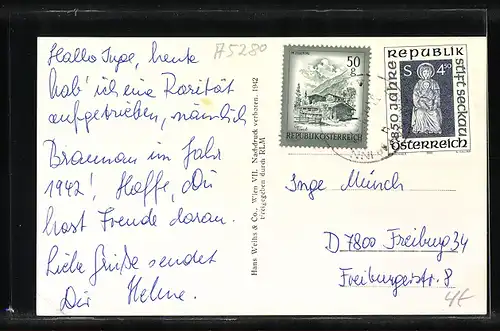 Hallo Inge, heute
hab' ich eine Rarität
aufgetrieben, nämlich
Braunau im Jahr
1942! Hoffe, Du
hast Freude daran.
Liebe Grüße sendet
Dir Helene.
A5280
Hans Weihs & Co., Wien VII. Nachdruck verboten. 1942
Freigegeben durch RLM
50
g
REPUBLIK ÖSTERREICH
850 JAHRE
REPUBLIK
STIFT SECKAU
S 4,50
ÖSTERREICH
INN
Inge Münch
D 7800 Freiburg 34
Freiburgerstr. 8